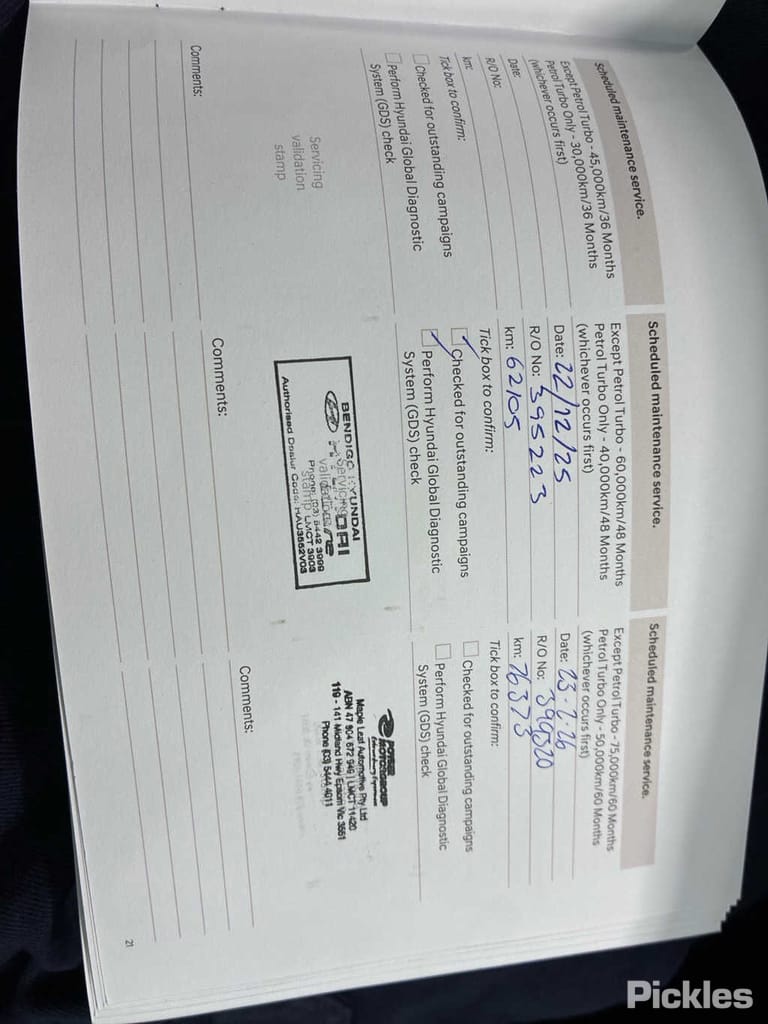 Scheduled maintenance service.
Except Petrol Turbo - 45,000km/36 Months
Petrol Turbo Only - 30,000km/36 Months
(whichever occurs first)
Date:
R/O No:
km:
Tick box to confirm:
Checked for outstanding campaigns
Perform Hyundai Global Diagnostic
System (GDS) check
Servicing
validation
stamp
Comments:
Scheduled maintenance service.
Except Petrol Turbo - 60,000km/48 Months
Petrol Turbo Only - 40,000km/48 Months
(whichever occurs first)
Date: 22/12/25
R/O No: 395223
km: 62105
Tick box to confirm:
Checked for outstanding campaigns
Perform Hyundai Global Diagnostic
System (GDS) check
BENDIGO HYUNDAI
Servicing
validation
stamp
Phone: (03) 5442 3999
LMCT 3903
Authorised Dealer Code: HAU3652V03
Comments:
Scheduled maintenance service.
Except Petrol Turbo - 75,000km/60 Months
Petrol Turbo Only - 50,000km/60 Months
(whichever occurs first)
Date: 23.2.26
R/O No:
km: 76373
Tick box to confirm:
Checked for outstanding campaigns
Perform Hyundai Global Diagnostic
System (GDS) check
POYSER
MOTORGROUP
Maple Leaf Automotive Pty Ltd
ABN 47 904 672 946 | LMCT 11420
119 - 141 Midland Hwy Epsom Vic 3551
Phone (03) 5444 4011
Comments:
21
Pickles